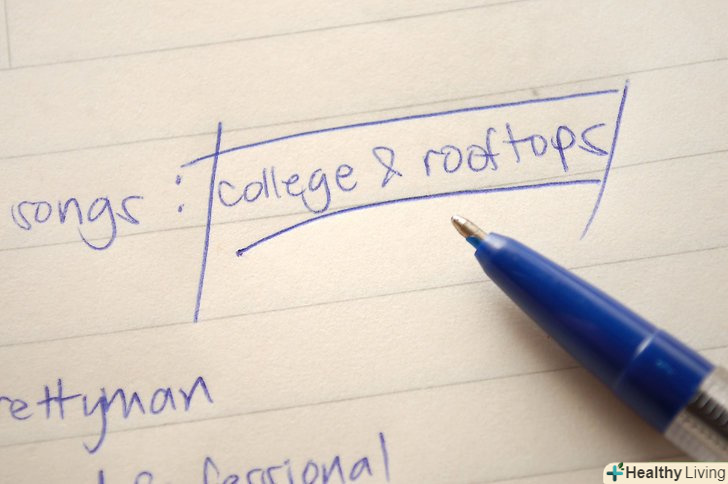 songs: college & rooftops
rettyman
Healthy Living